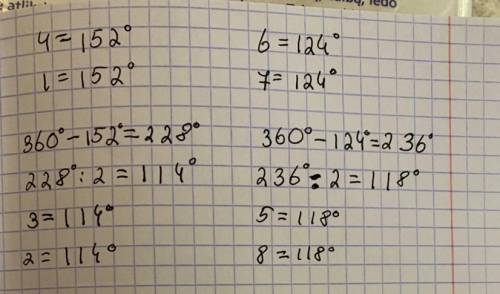 4 = 152°
1 = 152°
360° - 152° = 228°
228° : 2 = 114°
3 = 114°
2 = 114°
6 = 124°
7 = 124°
360° - 124° = 236°
236° : 2 = 118°
5 = 118°
8 = 118°